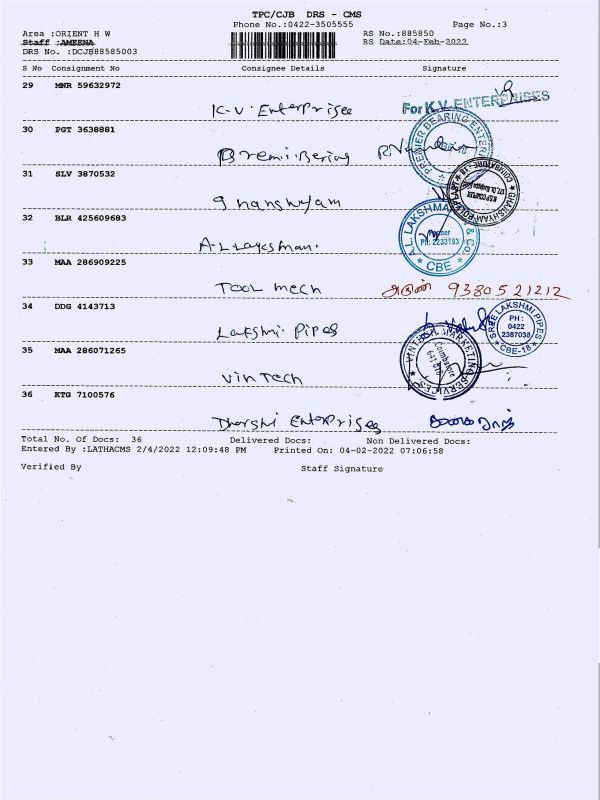 TPC/CJB DRS - CMS
Phone No.:0422-3505555 Page No.:3
Area :ORIENT H W RS No.:885850
Staff :AMEENA RS Date:04-Feb-2022
DRS No. :DCJB88585003
S No Consignment No Consignee Details Signature
29 MNR 59632972
K.V. Enterprises For K.V. ENTERPRISES
30 PGT 3638881
Premi. Bering
PREMIER BEARING ENTER
31 SLV 3870532
Ghanshyam
GHANSHYAM
COIMBATORE - 18
32 BLR 425609683
A.L Laxshman.
A.L. LAKSHMA & CO.
PH: 2233193
CBE
33 MAA 286909225
TOOL mech அருண் 9380521212
34 DDG 4143713
Lakshmi Pipes
SREE LAKSHMI PIPES
PH :
0422
2387038
CBE-18
35 MAA 286071265
VinTech
VINTECH MARKETING SERVICES
Coimbatore
641 018
36 KTG 7100576
Dharshi Enterprises
Total No. Of Docs: 36 Delivered Docs: Non Delivered Docs:
Entered By :LATHACMS 2/4/2022 12:09:48 PM Printed On: 04-02-2022 07:06:58
Verified By Staff Signature